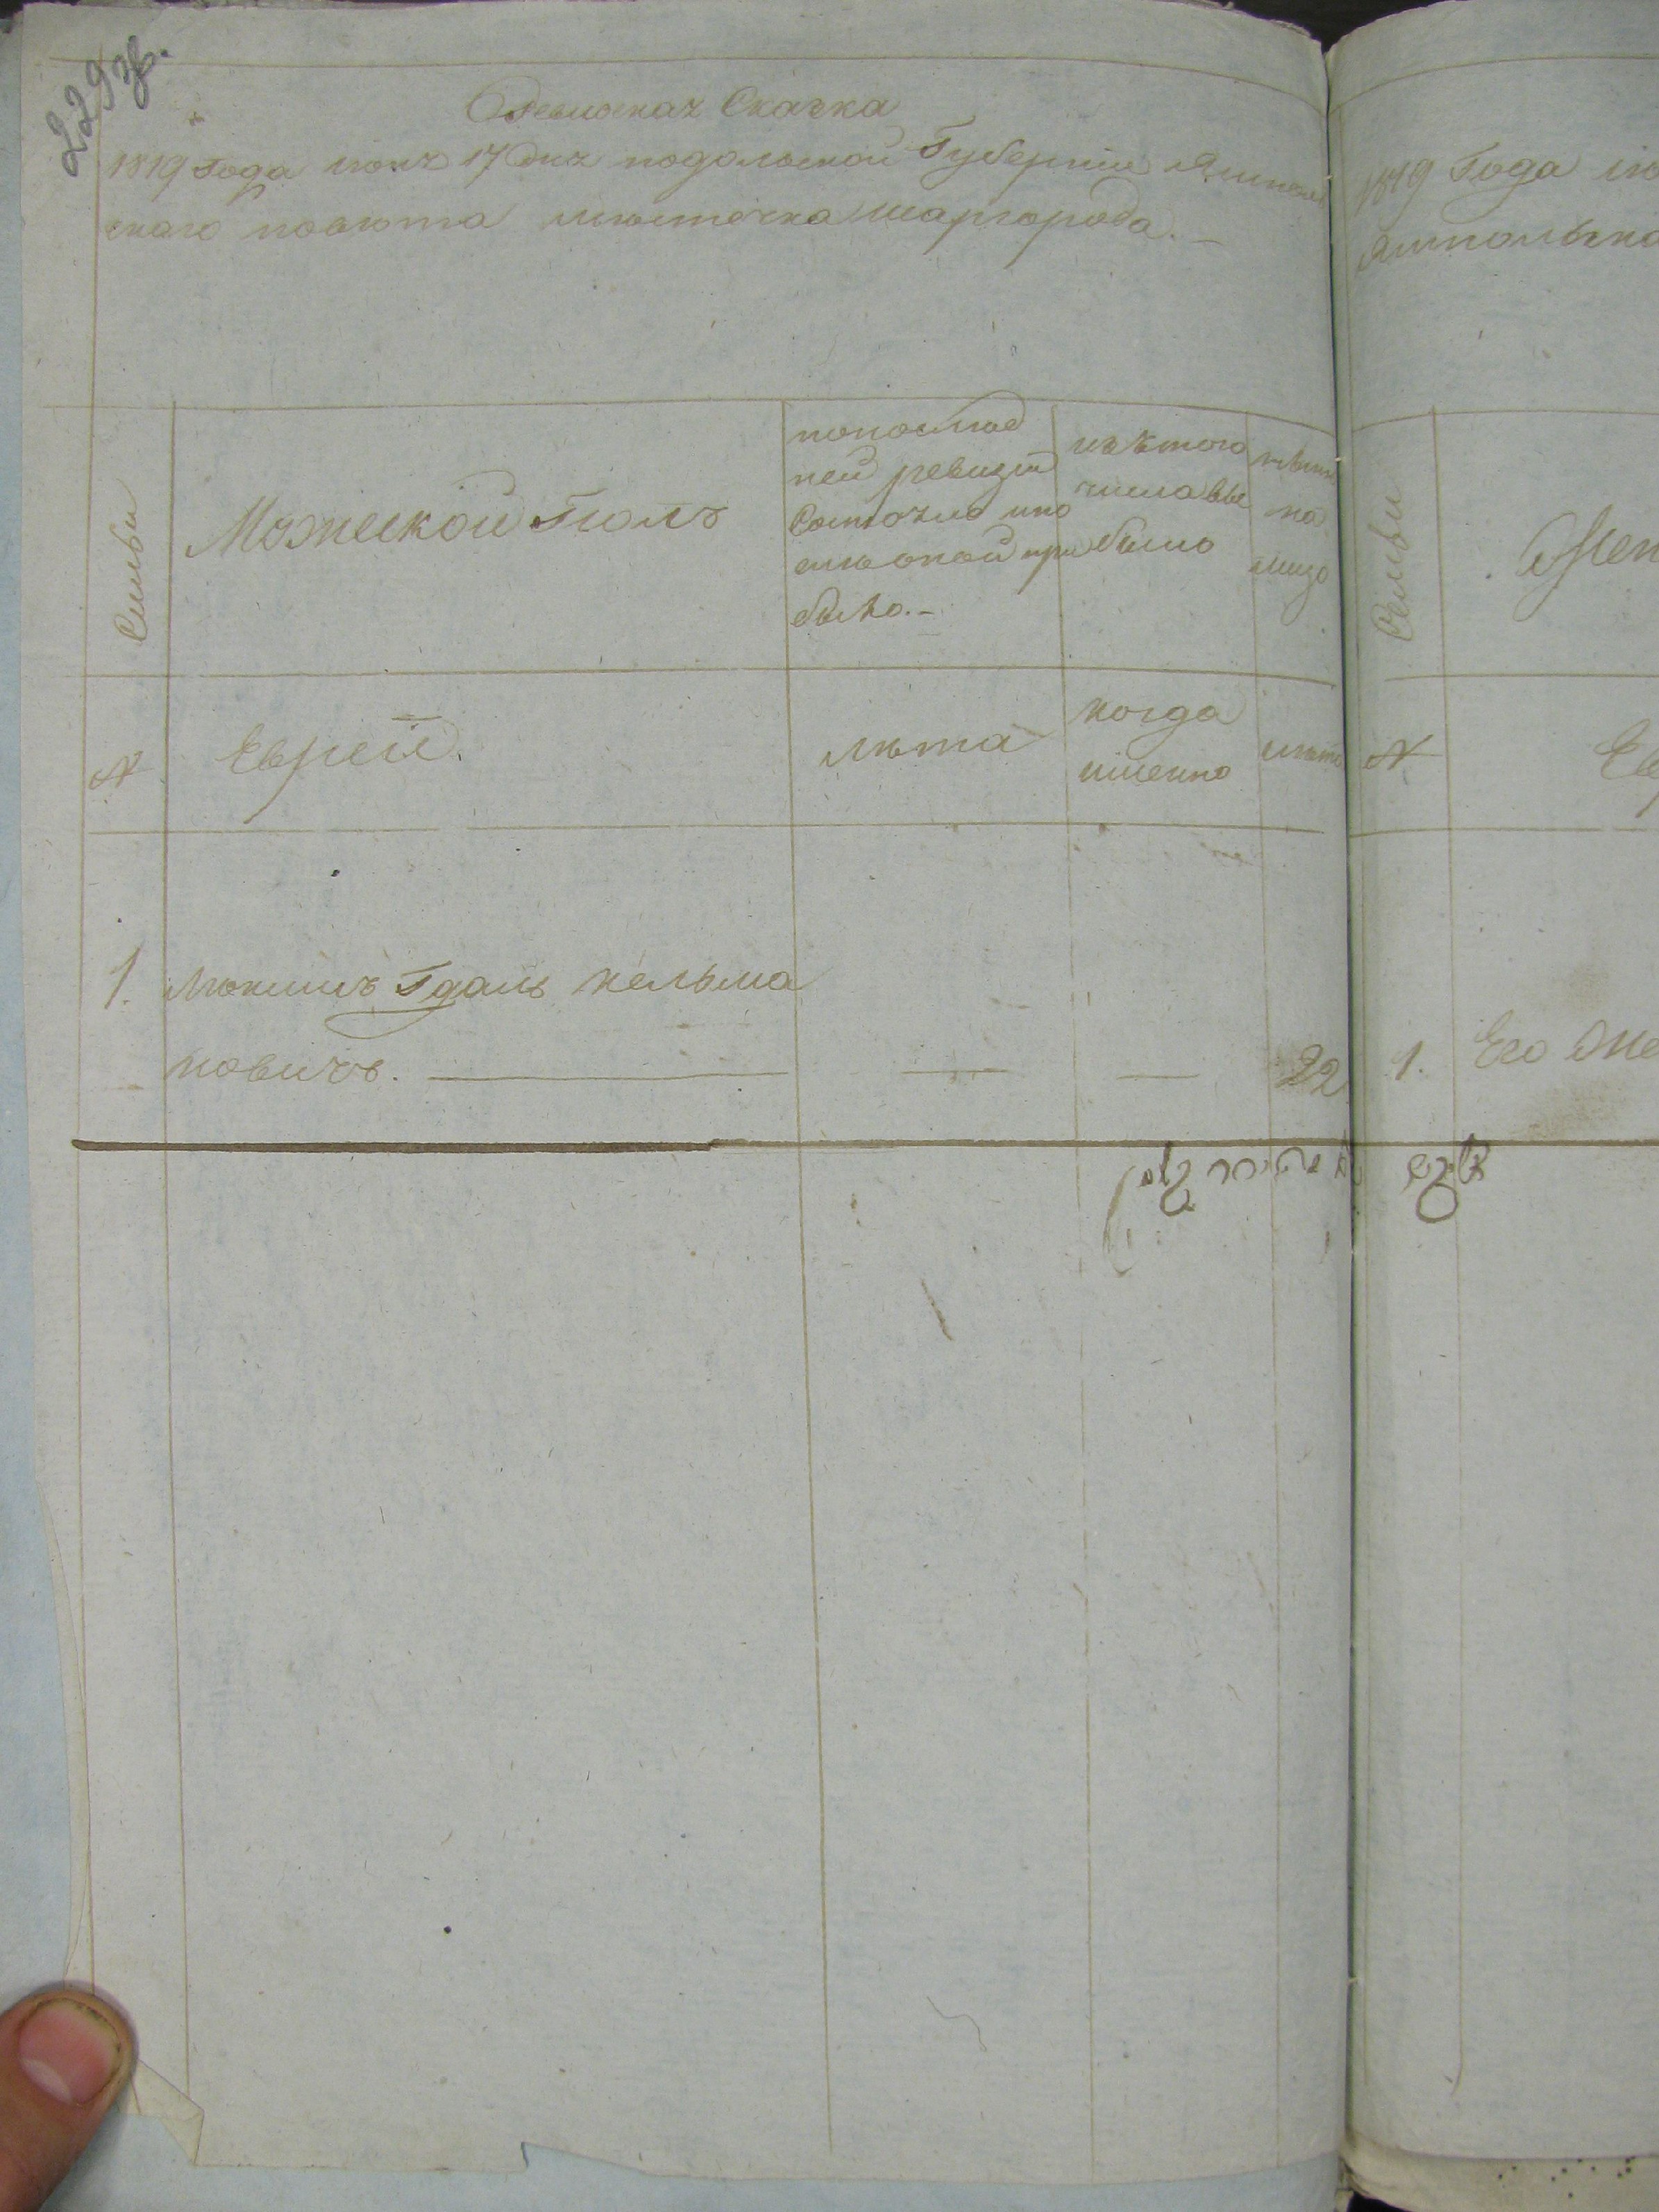 229 зв.
Ревизская Сказка
1819 Года июня 17 дня подольской Губерніи Ямполь
скаго повѣта мѣстечка шаргорода.
Семьи
Мужеской Полъ
попослѣд
ней ревизіи
Состояло ипо
слѣ оной при
было.
изътого
числа выбыло
нынѣ
на
лицо
№
Евреи.
лѣта
когда
имянно
лѣта
1.
Гдаль кельма
новичъ.
22
1819 Года ию
Ямпольска
Семьи
Жен
№
Ев
1.
Его Же